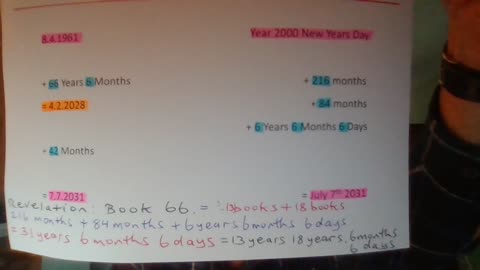 8.4.1961
+ 66 Years 6 Months
= 4.2.2028
+ 42 Months
= 7.7.2031
Year 2000 New Years Day
+ 216 months
+ 84 months
+ 6 Years 6 Months 6 Days
= July 7th 2031
Revelation: Book 66. = 13books + 18 books
216 months + 84 months + 6 years 6 months 6 days
= 31 years 6 months 6 days = 13 years 18 years, 6 months
6 days